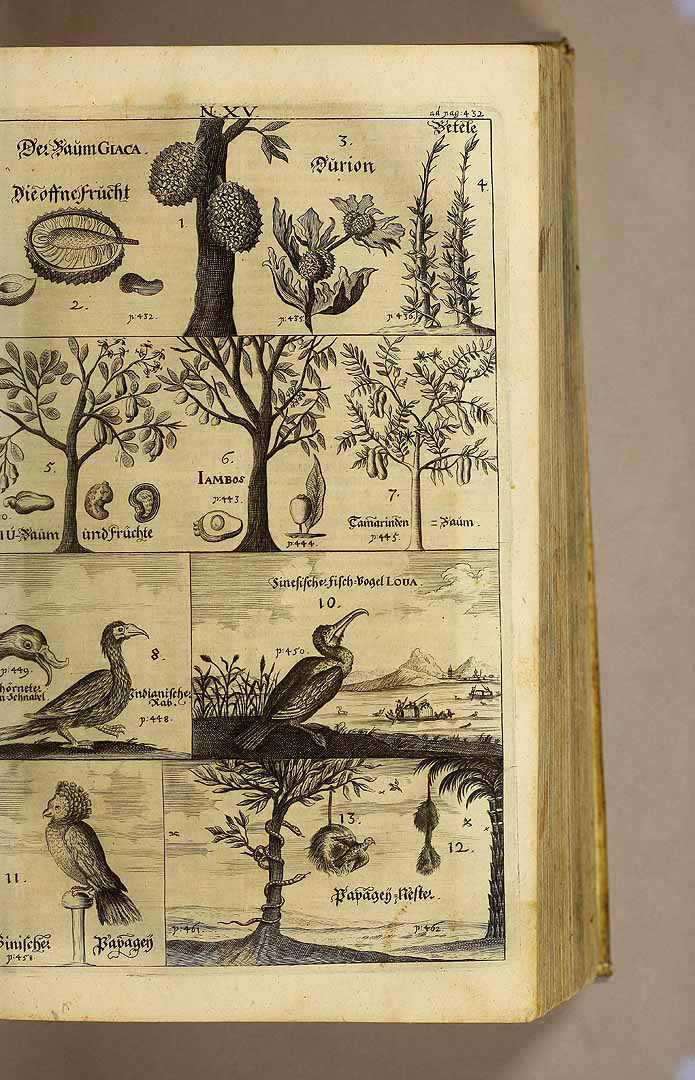 N. XV.
ad pag: 432
Der Baum GIACA.
Die offne Frucht
1.
2.
p: 432.
3.
Dŭrion
p: 435.
Betele
4.
p: 436.
5.
IU-Baŭm ŭnd Frŭchte
6.
IAMBOS
p: 443.
p: 444.
7.
Tamarinden = Baŭm.
p: 445.
p: 449.
hörneter
Schnabel
8.
Indianische
Rab.
p: 448.
Sinesischer Fisch-Vogel LOUA.
10.
p: 450.
11.
Sinischer Papagey
p: 458
13.
12.
Papagey-Nester.
p: 461.
p: 462